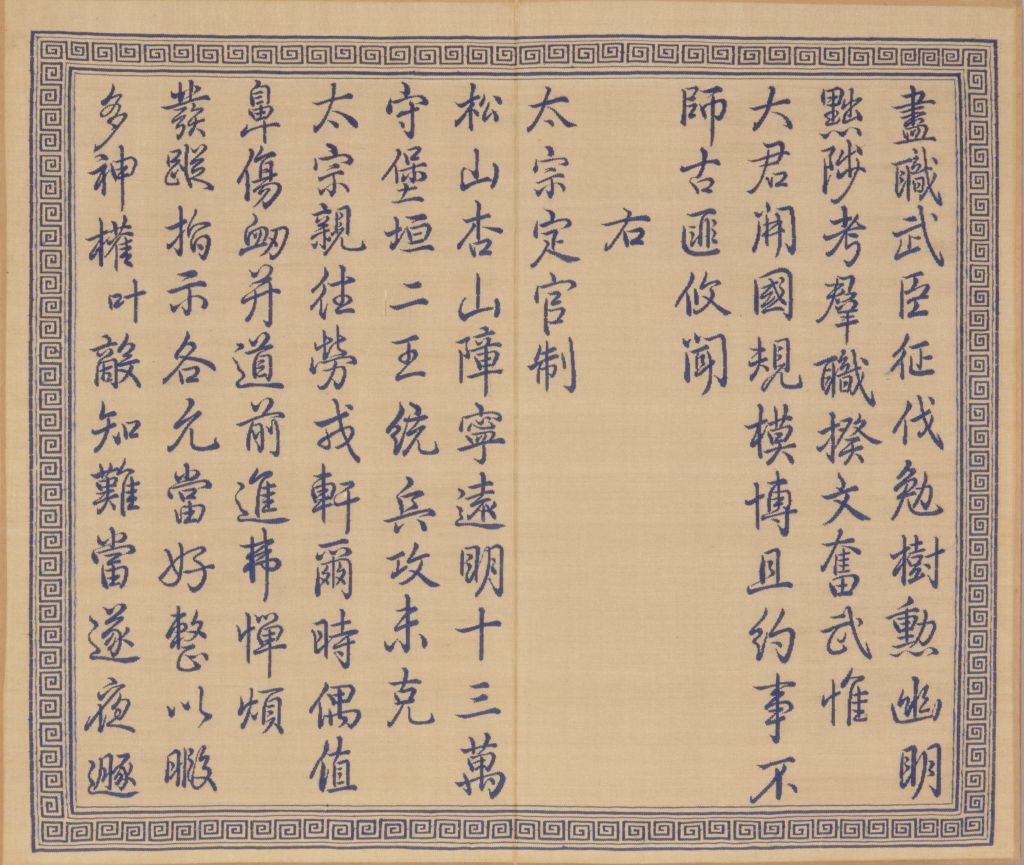 盡職武臣征伐勉樹勳幽明
黜陟考羣職揆文奮武惟
大君開國規模博且約事不
師古匪攸聞
右
太宗定官制
松山杏山障寧遠明十三萬
守堡垣二王統兵攻未克
太宗親往勞戎軒爾時偶值
鼻傷衂并道前進弗憚煩
發蹤指示各允當好整以暇
多神權叶敵知難當遂夜遯